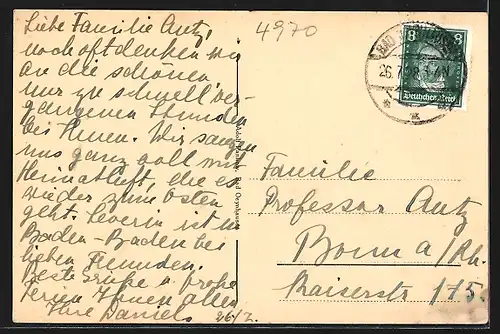 Liebe Familie Antz,
noch oft denken wir
an die schönen
nur zu schnell ver-
gangenen Stunden
bei Ihnen. Wir saugen
uns ganz voll mit
Heimatluft, ehe es
wieder zum Osten
geht. Severin ist in
Baden-Baden bei
lieben Freunden.
Beste Grüße u. frohe
Ferien Ihnen allen
Ihre Daniels 26/7.
4970
BAD
26.7.28
8 8
Deutsches Reich
Familie
Professor Antz
Bonn a/Rh.
Kaiserstr 175.